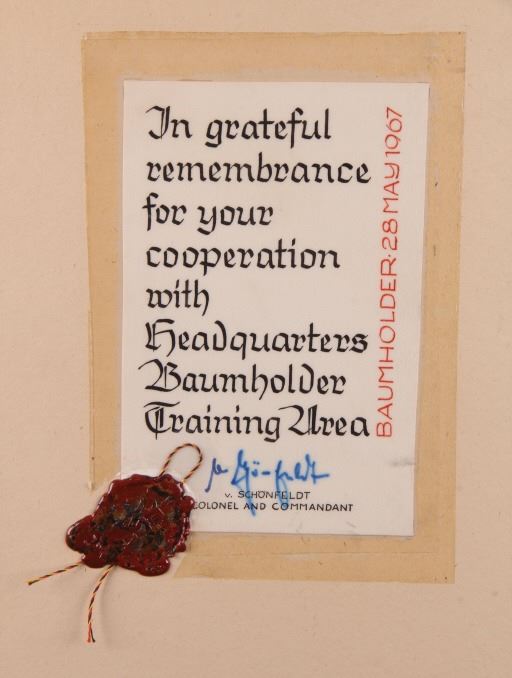 In grateful
remembrance
for your
cooperation
with
Headquarters
Baumholder
Training Area
BAUMHOLDER·28 MAY 1967
v. Schönfeldt
v. SCHÖNFELDT
COLONEL AND COMMANDANT